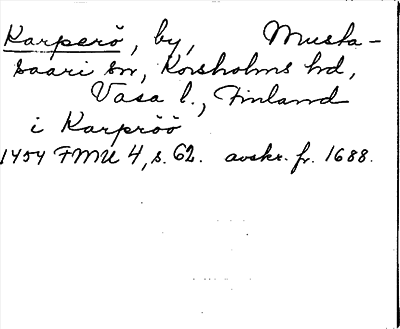 Karperö, by, Musta-
saari sn, Korsholms hd,
Vasa l., Finland
i Karpröö
1454 FMU 4, s. 62. avskr. fr. 1688.